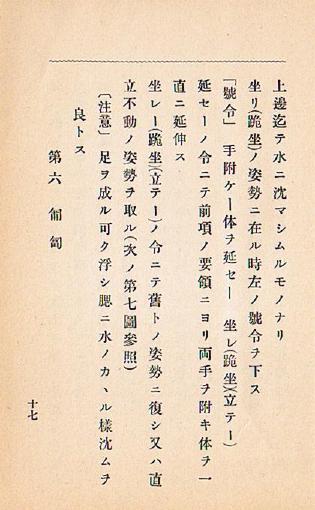 上邊迄テ水ニ沈マシムルモノナリ
坐リ(跪坐)ノ姿勢ニ在ル時左ノ號令ヲ下ス
「號令」 手附ケー体ヲ延セー 坐レ(跪坐)(立テー)
延セーノ令ニテ前項ノ要領ニヨリ両手ヲ附キ体ヲ一
直ニ延伸ス
坐レー(跪坐)(立テー)ノ令ニテ舊トノ姿勢ニ復シ又ハ直
立不動ノ姿勢ヲ取ル(次ノ第七圖參照)
〔注意〕 足ヲ成ル可ク浮シ腮ニ水ノカヽル樣沈ムヲ
良トス
第六 匍匐
十七